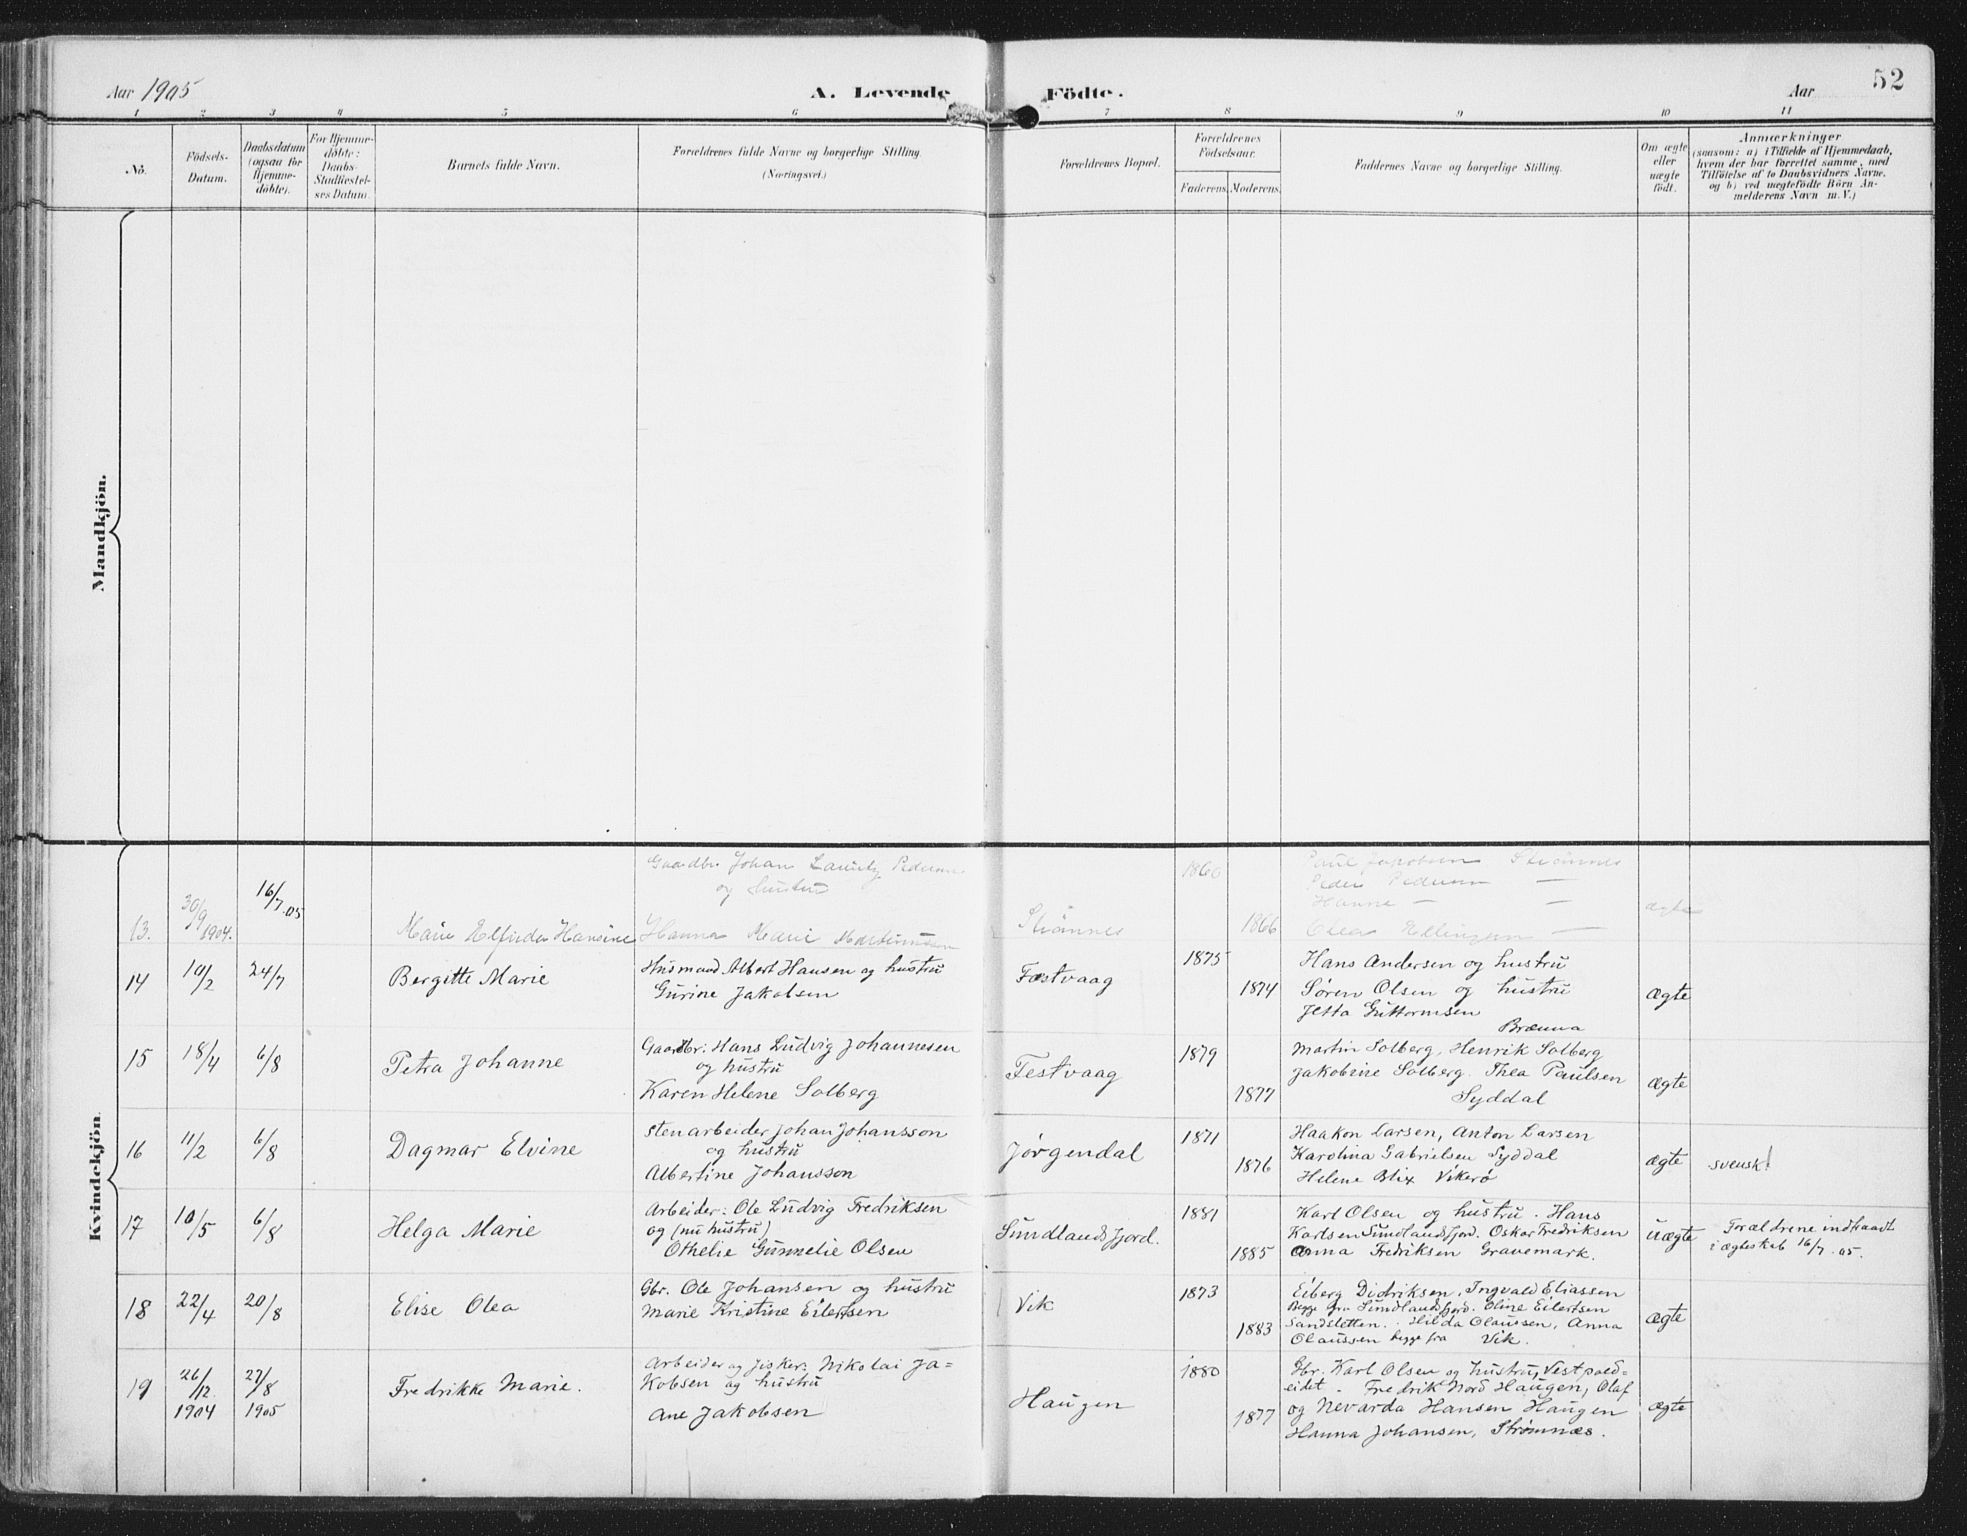 52
Aar 1905
A. Levende Födte.
Aar
1 2 3 4 5 6 7 8 9 10 11
No.
Födsels-
Datum.
Daabsdatum
(ogsaa for
Hjemme-
döbte).
For Hjemme-
döbte:
Daabs-
Stadfæstel-
ses Datum.
Barnets fulde Navn.
Forældrenes fulde Navne og borgerlige Stilling.
(Næringsvei.)
Forældrenes Bopæl.
Forældrenes
Födselsaar.
Faderens.
Moderens.
Faddernes Navne og borgerlige Stilling.
Om ægte
eller
uægte
födt.
Anmærkninger
(saasom: a) i Tilfælde af Hjemmedaab,
hvem der har forrettet samme, med
Tilföielse af to Daabsvidners Navne,
og b) ved uægtefödte Börn An-
melderens Navn m. V.)
Mandkjön.
Kvindekjön.
13.
30/9 1904.
16/7 05
Marie Elfrida Hansine
Gaardbr. Johan Lauritz Pedersen
og hustru
Hanna Marie Martinussen
Strømnes
1860
1866
Paul Jakobsen Strømnes
Peder Pedersen —
Hanne — —
Olea Ellingsen —
ægte
14
10/2
24/7
Bergitte Marie
Husmand Albert Hansen og hustru
Gurine Jakobsen
Fæstvaag
1875
1874
Hans Andersen og hustru
Søren Olsen og hustru
Jetta Guttormsen
Brænna
ægte
15
18/4
6/8
Petra Johanne
Gaardbr: Hans Ludvig Johannesen
og hustru
Karen Helene Solberg
Festvaag
1879
1877
Martin Solberg, Henrik Solberg
Jakobine Solberg. Thea Paulsen
Syddal
ægte
16
11/2
6/8
Dagmar Elvine
Stenarbeider Johan Johansson
og hustru
Albertine Johansson
Jörgendal
1871
1876
Haakon Larsen, Anton Larsen
Karolina Gabrielsen Syddal
Helene Blix Vikerø
ægte
svensk!
17
10/5
6/8
Helga Marie
Arbeider: Ole Ludvig Fredriksen
og (nu hustru)
Othelie Gunnelie Olsen
Sundlandsfjord.
1881
1885
Karl Olsen og hustru. Hans
Karlsen Sundlandsfjord. Oskar Fredriksen
Anna Fredriksen Gravemark.
uægte
Forældrene indtraadt
i ægteskab 16/7. 05.
18
22/4
20/8
Elise Olea
Gbr. Ole Johansen og hustru
Marie Kristine Eilertsen
Vik
1873
1883
Eiberg Didriksen, Ingvald Eliassen
Begge fra Sundlandsfjord. Eline Eilertsen
Sandsletten. Hilda Olaussen, Anna
Olaussen begge fra Vik.
ægte
19
26/12 1904
27/8 1905
Fredrikke Marie.
Arbeider og fisker: Nikolai Ja=
kobsen og hustru
Ane Jakobsen
Haugen
1880
1877
Gbr. Karl Olsen og hustru, Vestpold-
eidet. Fredrik Nord Haugen, Olaf
og Nevarda Hansen Haugen
Hanna Johansen, Strømnæs.
ægte